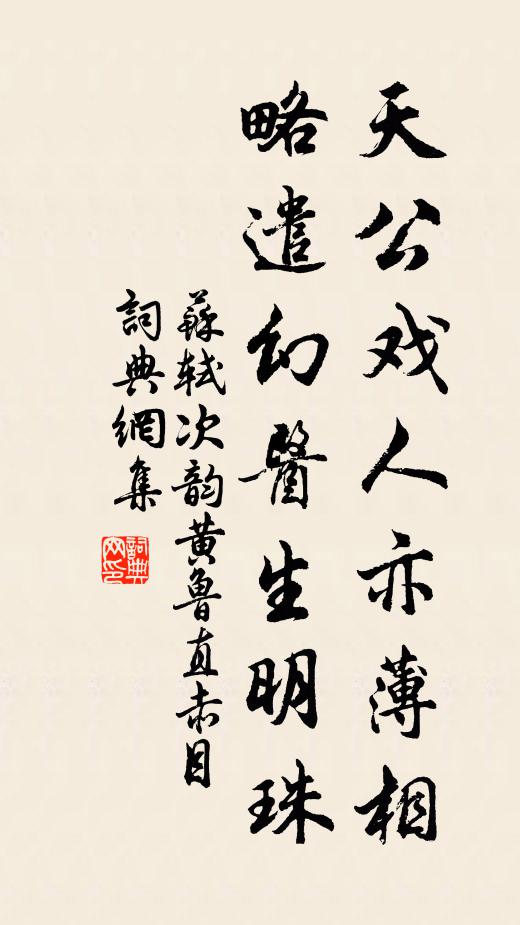 天公戏人亦薄相
略遣幻醫生明珠
蘇軾次韵黄魯直赤目
詞典網集
詞典网印